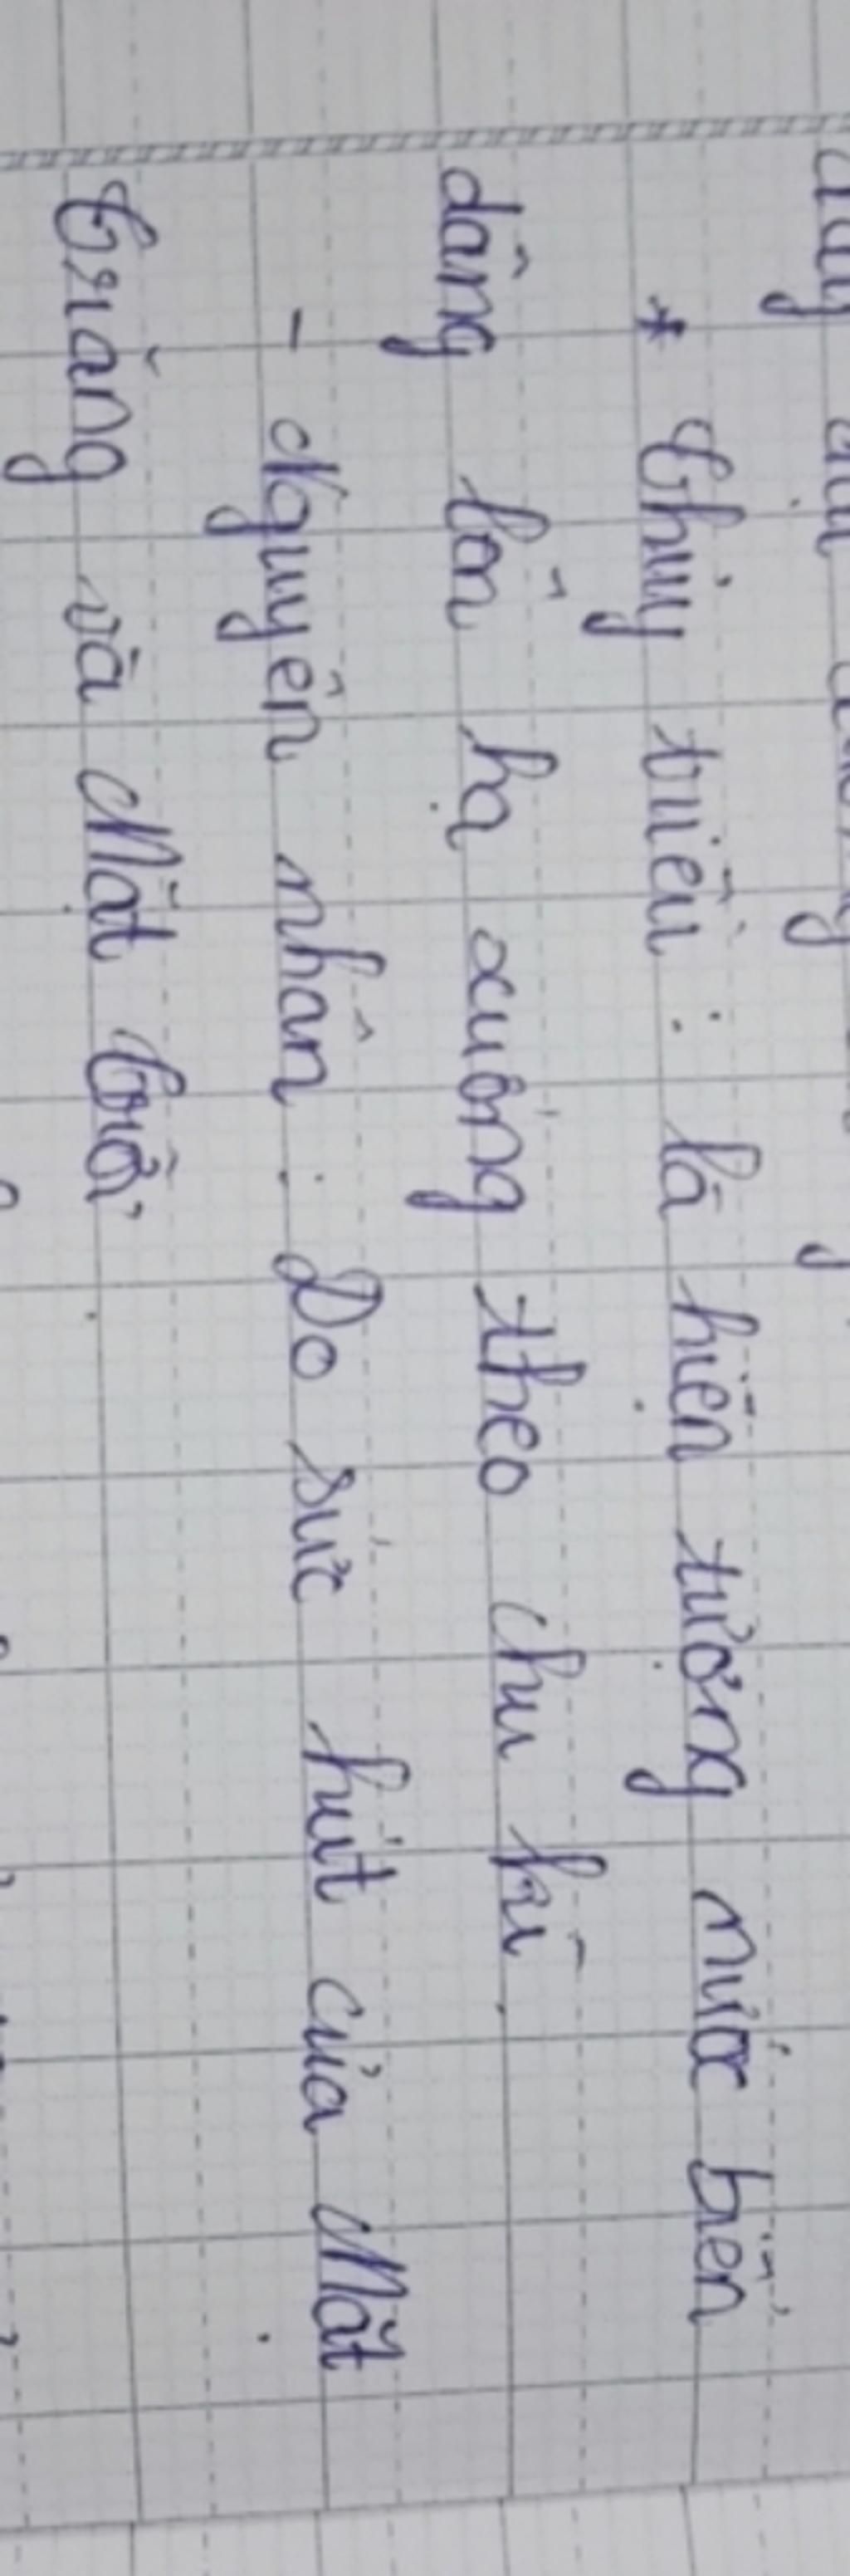 * Thủy triều : là hiện tượng nước biển
dâng lên hạ xuống theo chu kì.
- Nguyên nhân : Do sức hút của Mặt
Trăng và Mặt Trời.